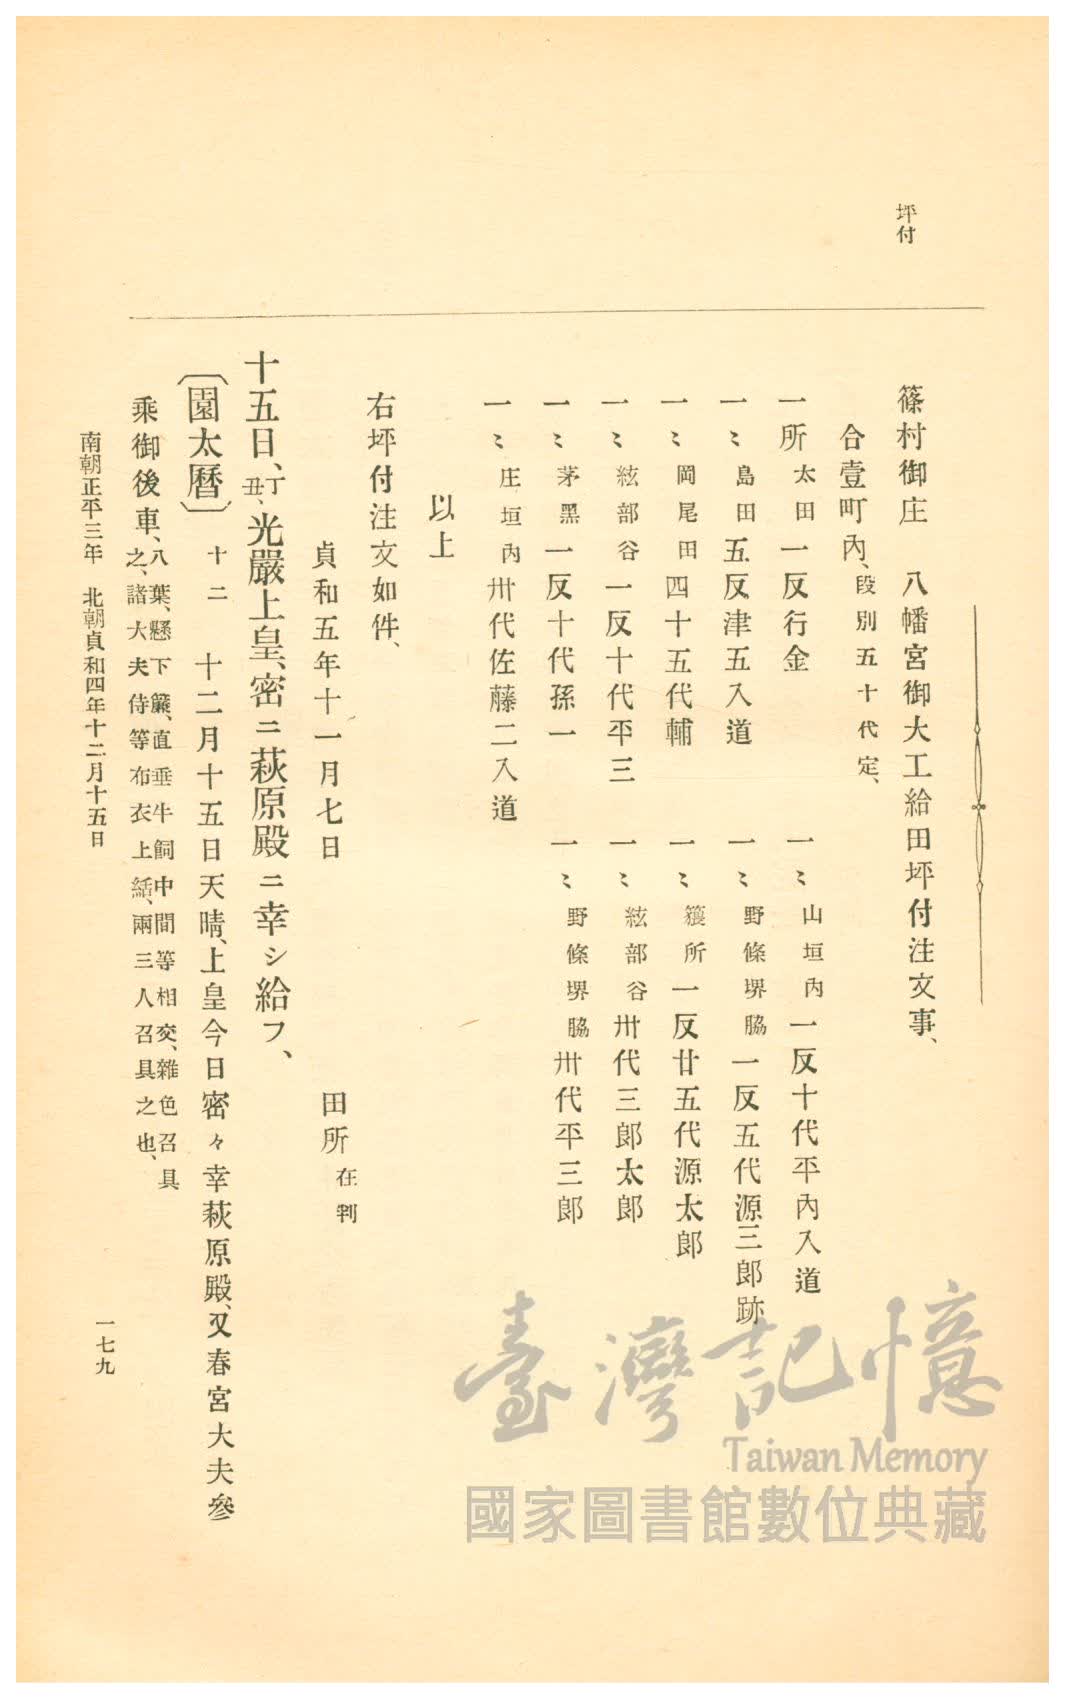 坪付
篠村御庄　八幡宮御大工給田坪付注文事、
合壹町內、段別五十代定、
一所太田一反行金
一〻山垣內一反十代平內入道
一〻島田五反津五入道
一〻野條堺脇一反五代源三郎跡
一〻岡尾田四十五代輔
一〻籰所一反廿五代源太郎
一〻絃部谷一反十代平三
一〻絃部谷卅代三郎太郎
一〻茅黑一反十代孫一
一〻野條堺脇卅代平三郎
一〻庄垣內卅代佐藤二入道
以上
右坪付注文如件、
貞和五年十一月七日
田所在判
十五日、丁丑、光嚴上皇、密ニ萩原殿ニ幸シ給フ、
〔園太曆〕十二　十二月十五日天晴、上皇今日密々幸萩原殿、又春宮大夫參
乘御後車、八葉、懸下簾、直垂牛飼中間等相交、雜色召具
之、諸大夫侍等布衣上結、兩三人召具之也、
南朝正平三年　北朝貞和四年十二月十五日
一七九
臺灣記憶
Taiwan Memory
國家圖書館數位典藏